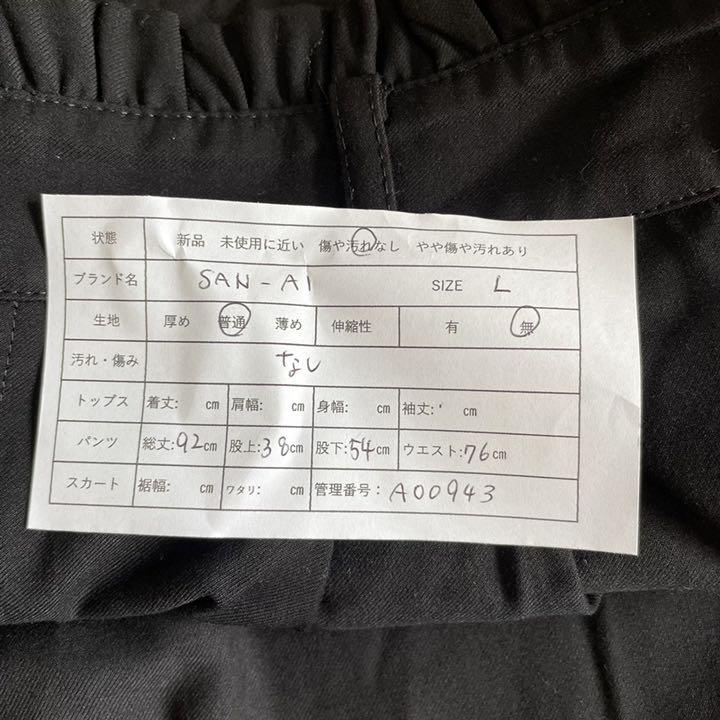 状態 新品 未使用に近い 傷や汚れなし やや傷や汚れあり
ブランド名 SAN-AI SIZE L
生地 厚め 普通 薄め 伸縮性 有 無
汚れ・傷み なし
トップス 着丈: cm 肩幅: cm 身幅: cm 袖丈: cm
パンツ 総丈:92cm 股上:38cm 股下:54cm ウエスト:76cm
スカート 裾幅: cm ワタリ: cm 管理番号: A00943